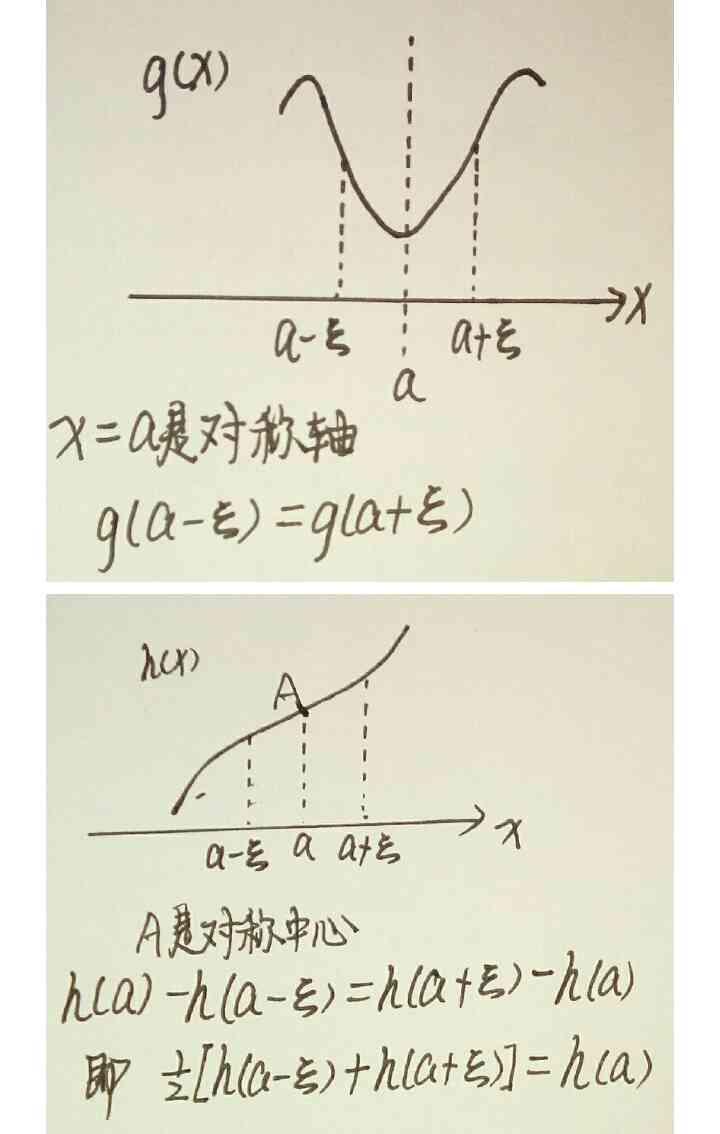 g(x)
x
a-ξ
a+ξ
a
x=a是对称轴
g(a-ξ)=g(a+ξ)
h(x)
A
x
a-ξ a a+ξ
A是对称中心
h(a)-h(a-ξ)=h(a+ξ)-h(a)
即 ½[h(a-ξ)+h(a+ξ)]=h(a)